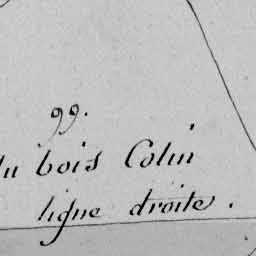 99.
du bois Colin
ligne droite.